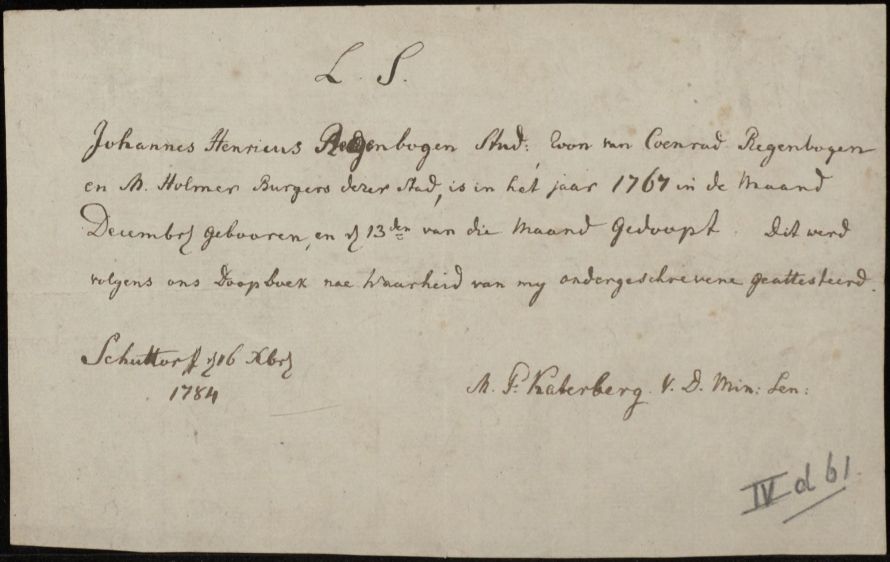 L. S.
Johannes Henricus Regenbogen Stud: Zoon van Coenrad Regenbogen
en M. Holmer Burgers dezer Stad, is in het jaar 1767 in de Maand
Decembr gebooren, en d 13den van die Maand gedoopt. Dit werd
volgens ons Doopboek nae Waarheid van my ondergeschrevene geattesteerd.
Schuttorff d 16 Xbr
1784
M. F. Katerberg. V. D. Min: Sen:
IV d 61